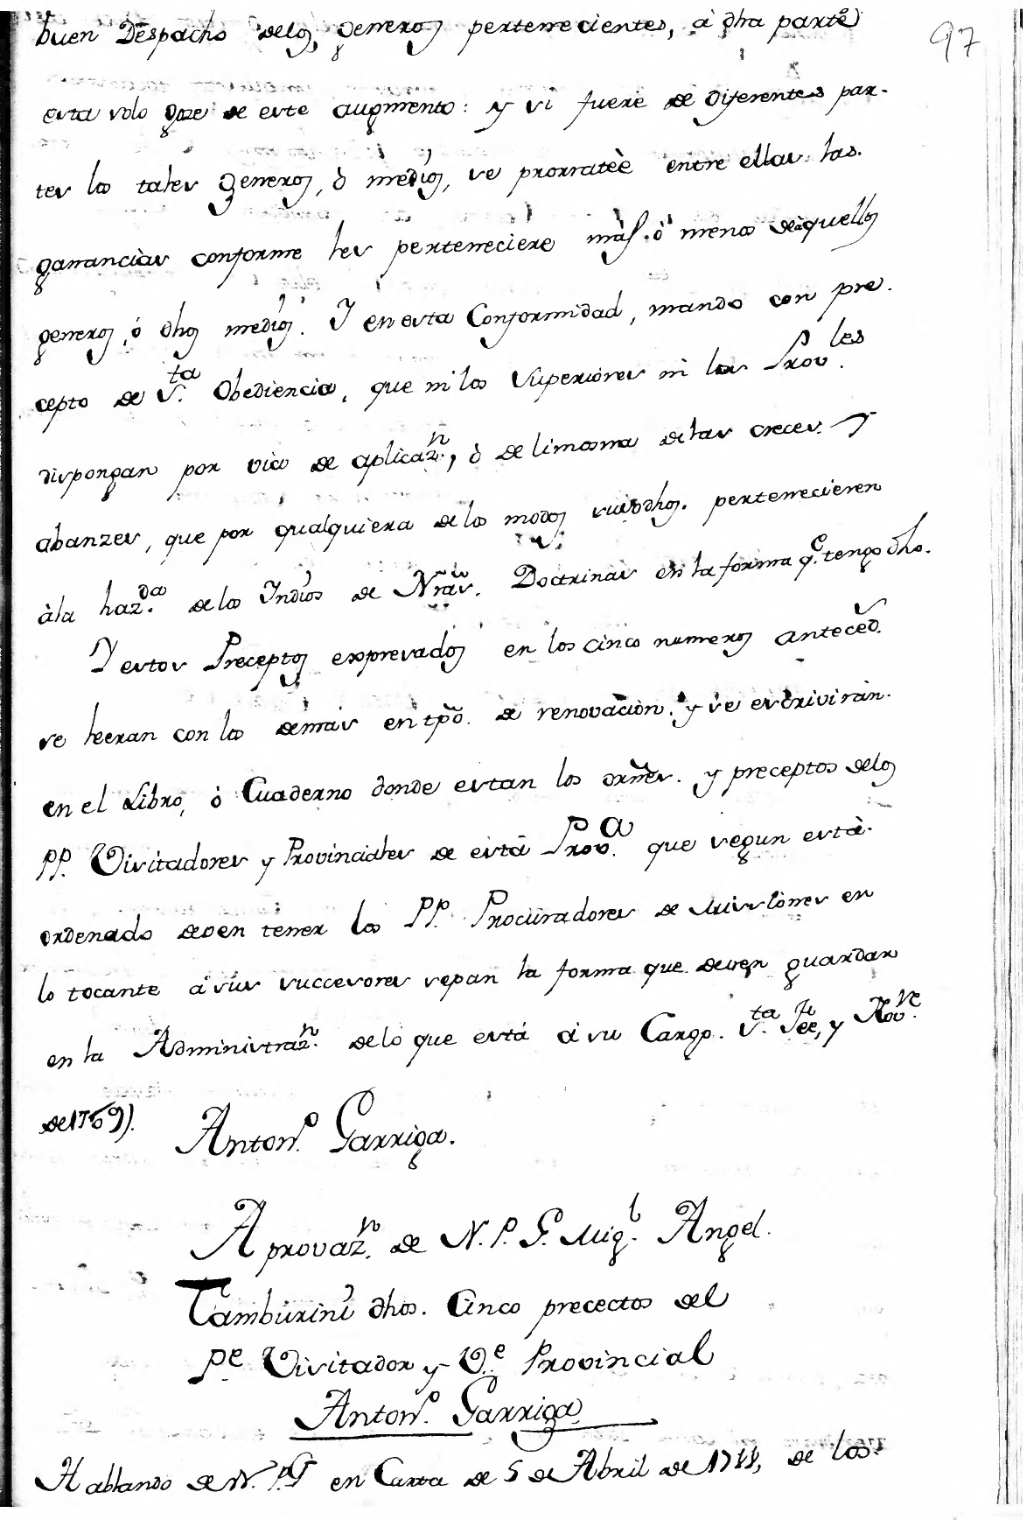 97
buen Despacho delos generos pertenecientes, à dha parte
esta solo goze de este augmento: y si fuere de diferentes par-
tes los tales generos, ò medios, se prorrateè entre ellas las
ganancias conforme les perteneciere màs. ò menos deàquellos
generos, ó dhos medios. Y en esta Conformidad, mando con pre
cepto de S.ta Obediencia, que ni los Superiores ni los Prov.les
dispongan por via de aplicaz.n, ò de limosna de las creces. y
abanzes, que por qualquiera de los modos susodhos. pertenecieren
àla haz.da de los Indios de Nras. Doctrinas en la forma q.e tengo dho.
Y estos Preceptos expresados en los cinco numeros anteced.
se leeran con los demas en tpõ. de renovaciòn. y se escriviràn.
en el Libro, ò Cuaderno donde estan los orñes. y preceptos delos
PP. Visitadores y Provinciales de esta Prov.a que segun està.
ordenado deven tener los PP. Procuradores de Missiones en
lo tocante à sus successores sepan la forma que deven guardar
en la Administraz.n de lo que està à su Cargo. S.ta Fee, y Nov.re
de 1709).
Anton.o Garriga.
Aprovaz.n de N. P. G. Mig.l Angel.
Tamburini dhos. Cinco precectos del
P.e Visitador y V.e Provincial
Anton.o Garriga
Hablando de N. P. G en Carta de 5 de Abril de 1711, de los